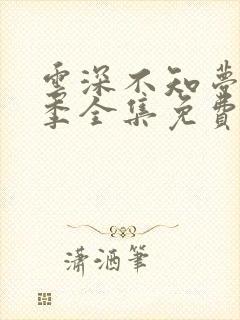 雲深不知夢
季全集免費
瀟洒筆